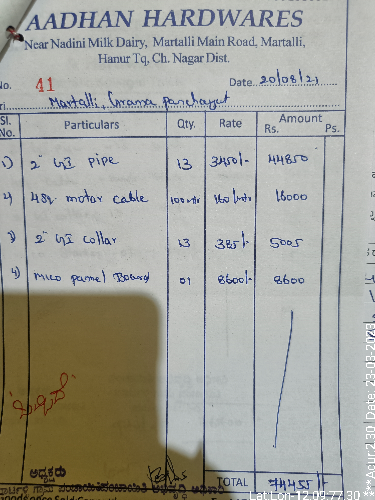 AADHAN HARDWARES
Near Nadini Milk Dairy, Martalli Main Road, Martalli,
Hanur Tq, Ch. Nagar Dist.
No. 41 Date 20/08/21
Martalli, Grama panchayat
Sl. No. Particulars Qty. Rate Amount Rs. Ps.
1) 2" GI pipe 13 3450/- 44850
2) 4sq. motor cable 100mtr 160/mtr 16000
3) 2" GI collar 13 385/- 5005
4) Mico panel Board 01 8600/- 8600
ಅಧ್ಯಕ್ಷರು
TOTAL 74455/-